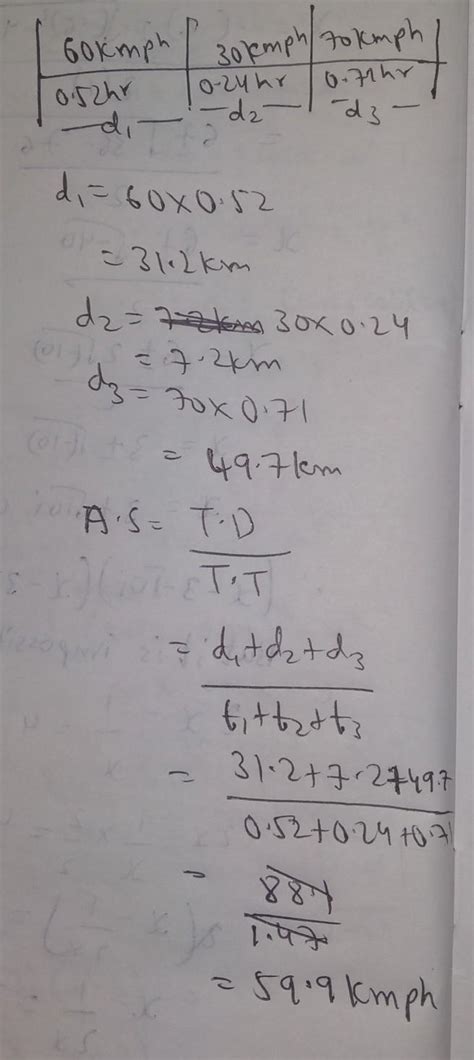 60kmph 30kmph 70kmph
0.52hr 0.24hr 0.71hr
d1 d2 d3
d1= 60×0.52
= 31.2km
d2= 7.2km 30×0.24
= 7.2km
d3= 70×0.71
= 49.7km
A.S= T.D
T.T
= d1+d2+d3
t1+t2+t3
= 31.2+7.2+49.7
0.52+0.24+0.71
= 88.1
1.47
= 59.9kmph